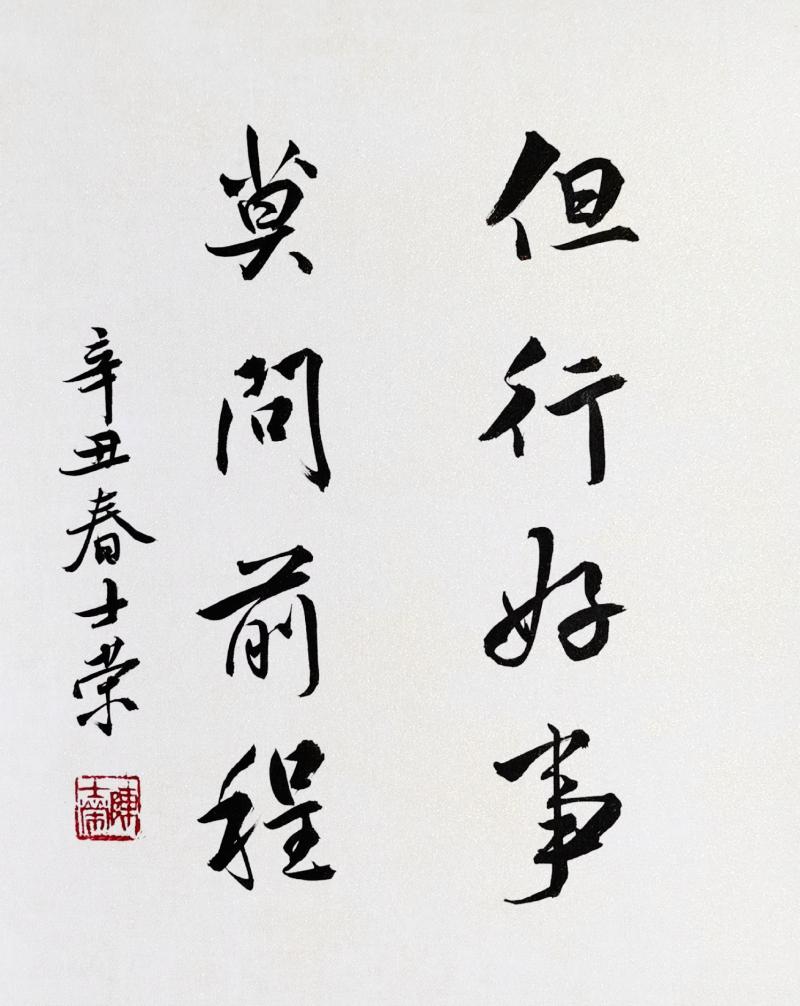 但行好事
莫問前程
辛丑春士荣
陳士榮